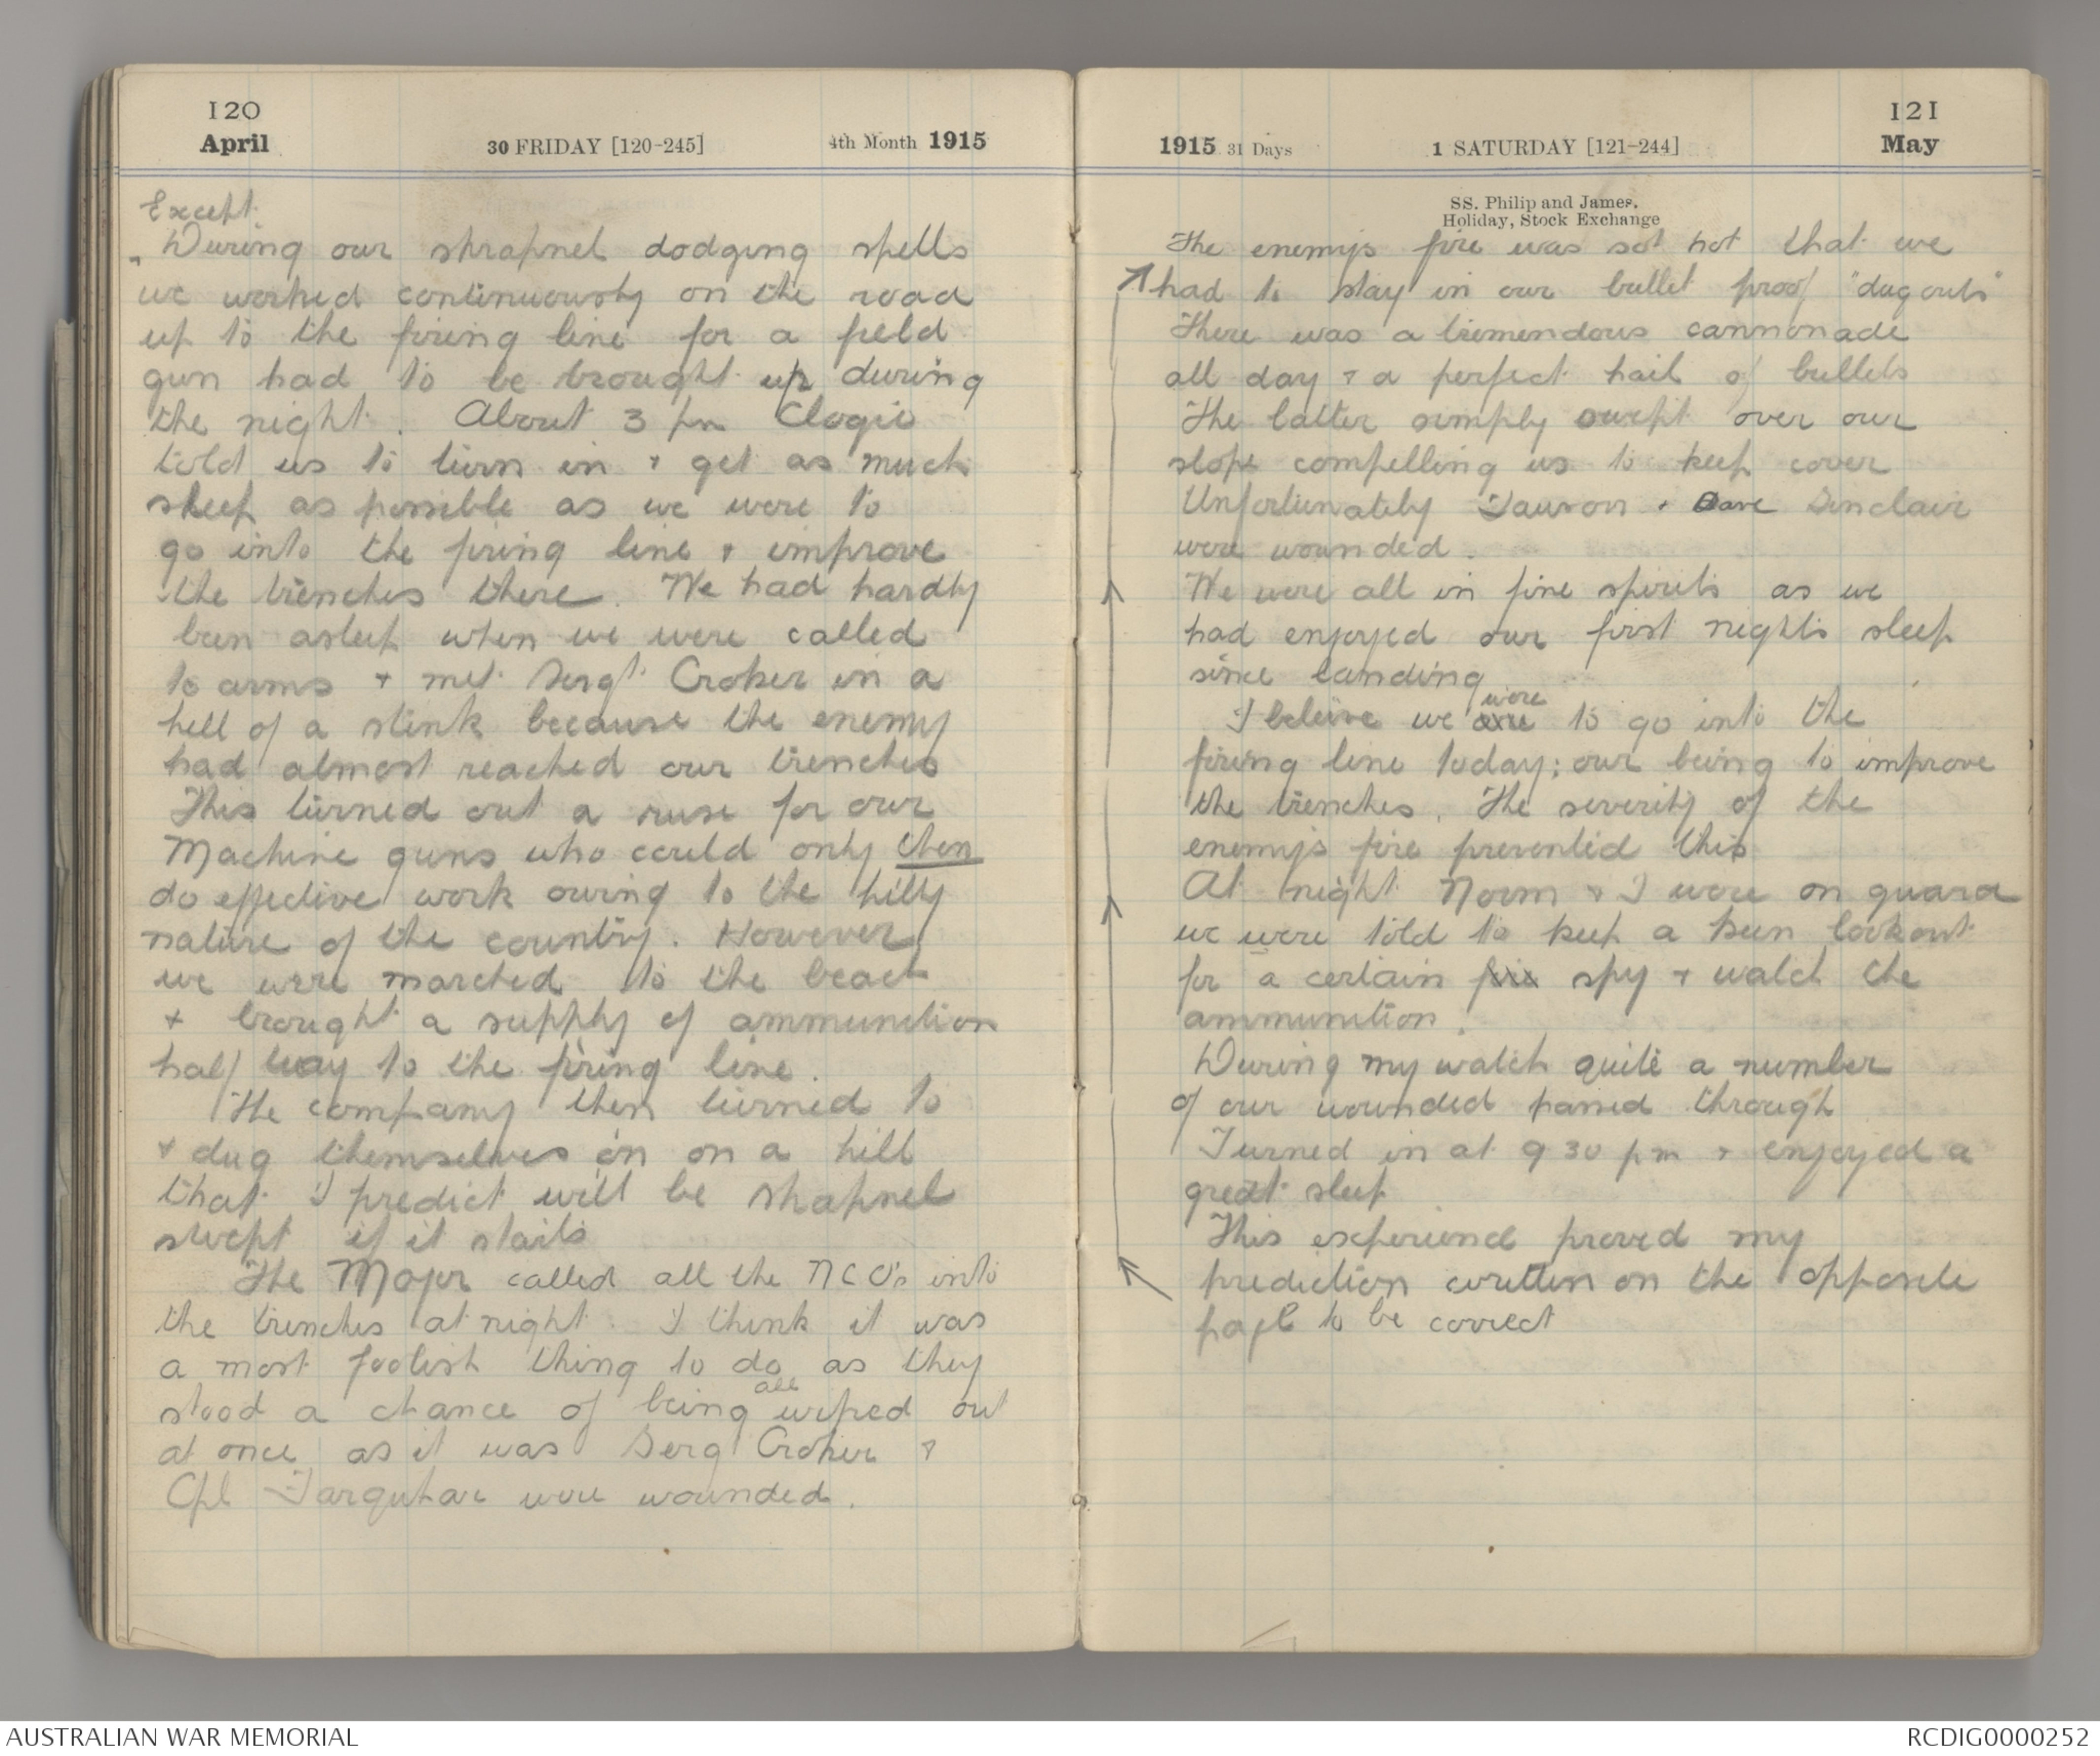 120
April
30 FRIDAY [120-245]
4th Month 1915
Except
During our shrapnel dodging spells
we worked continuously on the road
up to the firing line for a field
gun had to be brought up during
the night. About 3 pm Clogie
told us to turn in + get as much
sleep as possible as we were to
go into the firing line + improve
the trenches there. We had hardly
been asleep when we were called
to arms + met Sergt Croker in a
hell of a stink because the enemy
had almost reached our trenches
This turned out a ruse for our
Machine guns who could only then
do effective work owing to the hilly
nature of the country. However
we were marched to the beach
+ brought a supply of ammunition
half way to the firing line.
The company then turned to
+ dug themselves in on a hill
that I predict will be shapnel
swept if it starts
The Major called all the NCO's into
the trenches at night. I think it was
a most foolish thing to do as they
stood a chance of being all wiped out
at once as it was Serg Croker +
Cpl Farquhar were wounded.
121
1915 31 Days
1 SATURDAY [121-244]
May
SS. Philip and James.
Holiday, Stock Exchange
The enemys fire was sot hot that we
had to stay in our bullet proof "dug outs"
There was a tremendous cannonade
all day + a perfect hail of bullets
The latter simply swept over our
slope compelling us to keep cover
Unfortunately + Dave Sinclair
were wounded.
We were all in fine spirits as we
had enjoyed our first nights sleep
since landing
I beleive we are were to go into the
firing line today; our being to improve
the trenches. The severity of the
enemys fire prevented this
At night Norm + I were on guard
we were told to keep a keen lookout
for a certain spy + watch the
ammunition.
During my watch quite a number
of our wounded passed through
Turned in at 9 30 pm + enjoyed a
great sleep
This experience proved my
prediction written on the opposite
page to be correct
AUSTRALIAN WAR MEMORIAL
RCDIG0000252